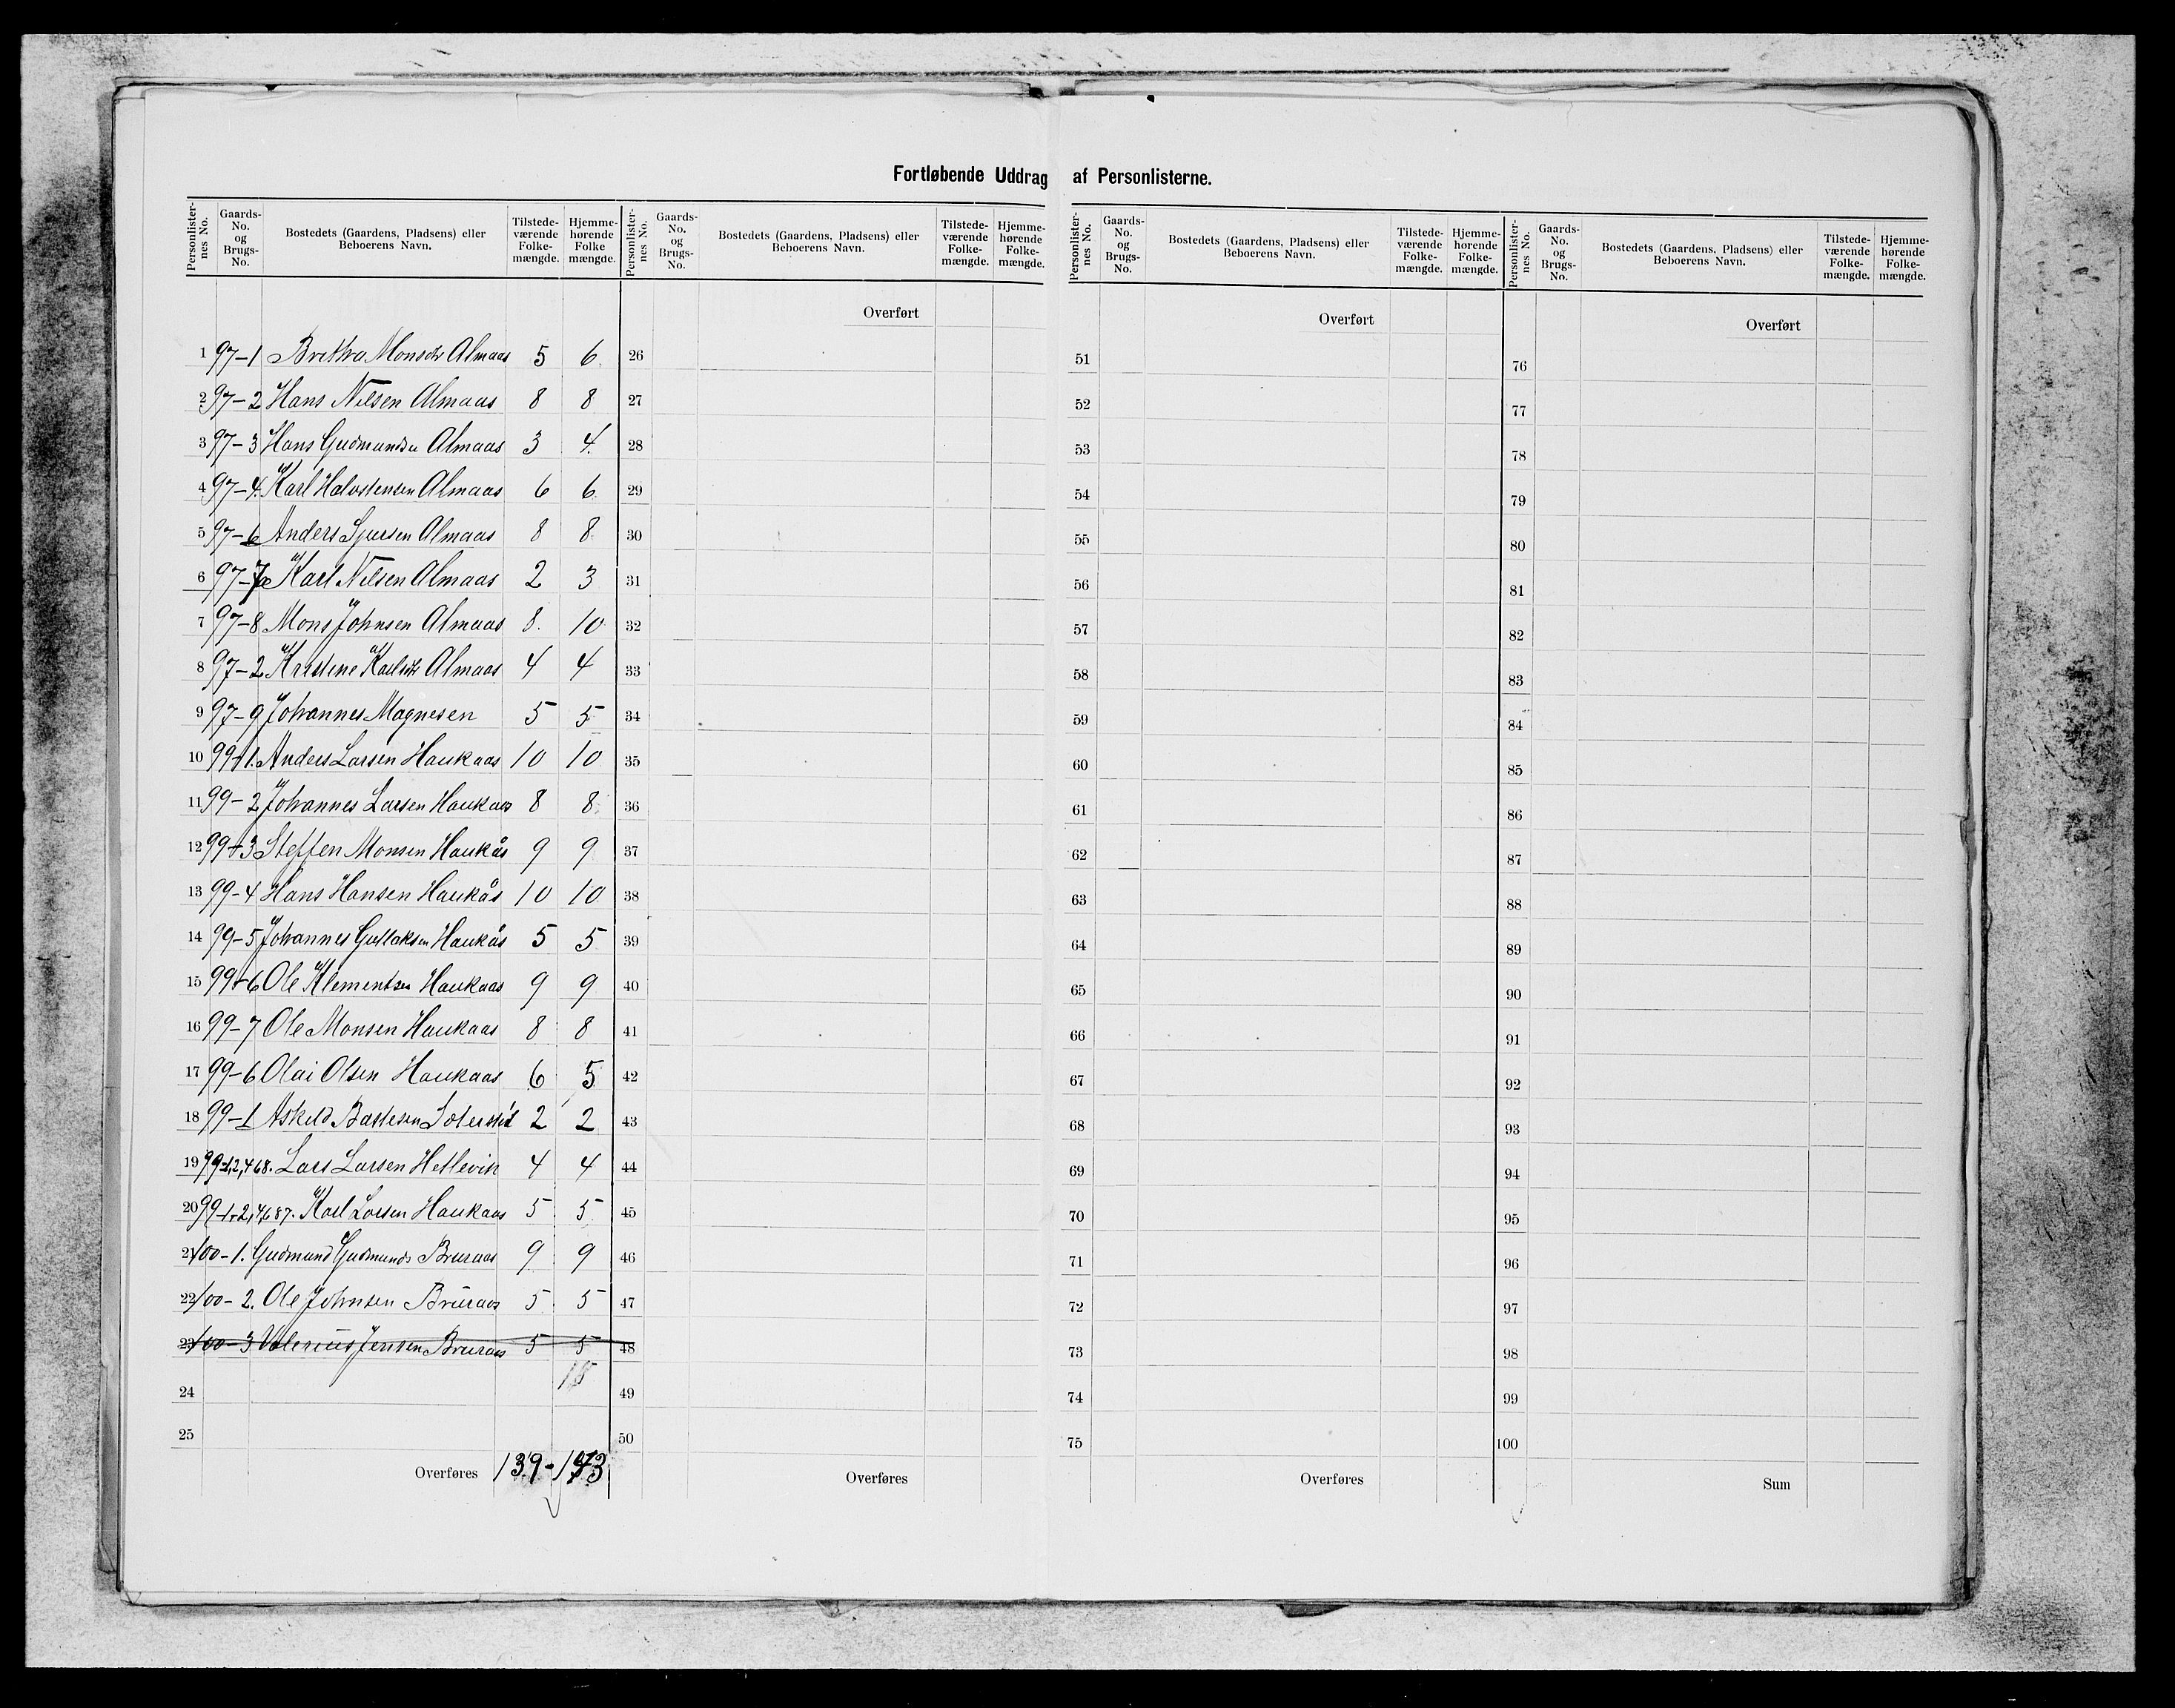 Fortløbende Uddrag af Personlisterne.
Personlisternes No. Gaards-No. og Brugs-No. Bostedets (Gaardens, Pladsens) eller Beboerens Navn. Tilstedeværende Folkemængde. Hjemmehørende Folkemængde.
Personlisternes No. Gaards-No. og Brugs-No. Bostedets (Gaardens, Pladsens) eller Beboerens Navn. Tilstedeværende Folkemængde. Hjemmehørende Folkemængde.
Personlisternes No. Gaards-No. og Brugs-No. Bostedets (Gaardens, Pladsens) eller Beboerens Navn. Tilstedeværende Folkemængde. Hjemmehørende Folkemængde.
Personlisternes No. Gaards-No. og Brugs-No. Bostedets (Gaardens, Pladsens) eller Beboerens Navn. Tilstedeværende Folkemængde. Hjemmehørende Folkemængde.
Overført Overført Overført
1 97-1 Brithe Monsdr Almaas 5 6 26 51 76
2 97-2 Hans Nilsen Almaas 8 8 27 52 77
3 97-3 Hans Gudmundsen Almaas 3 4 28 53 78
4 97-4 Karl Halvstensen Almaas 6 6 29 54 79
5 97-6 Anders Sjursen Almaas 8 8 30 55 80
6 97-7 Karl Nilsen Almaas 2 3 31 56 81
7 97-8 Mons Johnsen Almaas 8 10 32 57 82
8 97-2 Kristine Karlsdr Almaas 4 4 33 58 83
9 97-9 Johannes Magnesen 5 5 34 59 84
10 99-1 Anders Larsen Haukaas 10 10 35 60 85
11 99-2 Johannes Larsen Haukaas 8 8 36 61 86
12 99-3 Steffen Monsen Haukås 9 9 37 62 87
13 99-4 Hans Hansen Haukås 10 10 38 63 88
14 99-5 Johannes Gullaksen Haukås 5 5 39 64 89
15 99-6 Ole Klementsen Haukaas 9 9 40 65 90
16 99-7 Ole Monsen Haukaas 8 8 41 66 91
17 99-6 Olai Olsen Haukaas 6 5 42 67 92
18 99-1 Askeld Bastesen 2 2 43 68 93
19 99-1,2,4,6,8. Lars Larsen Hetlevik 4 4 44 69 94
20 99-1,2,4,6,8,7. Karl Larsen Haukaas 5 5 45 70 95
21 100-1. Gudmund Gudmunds Bruraas 9 9 46 71 96
22 100-2. Ole Johnsen Bruraas 5 5 47 72 97
23 100-3 Valerius Jensen Bruraas 5 5 48 73 98
24 49 74 99
25 50 75 100
Overføres 139-143 Overføres Overføres Sum